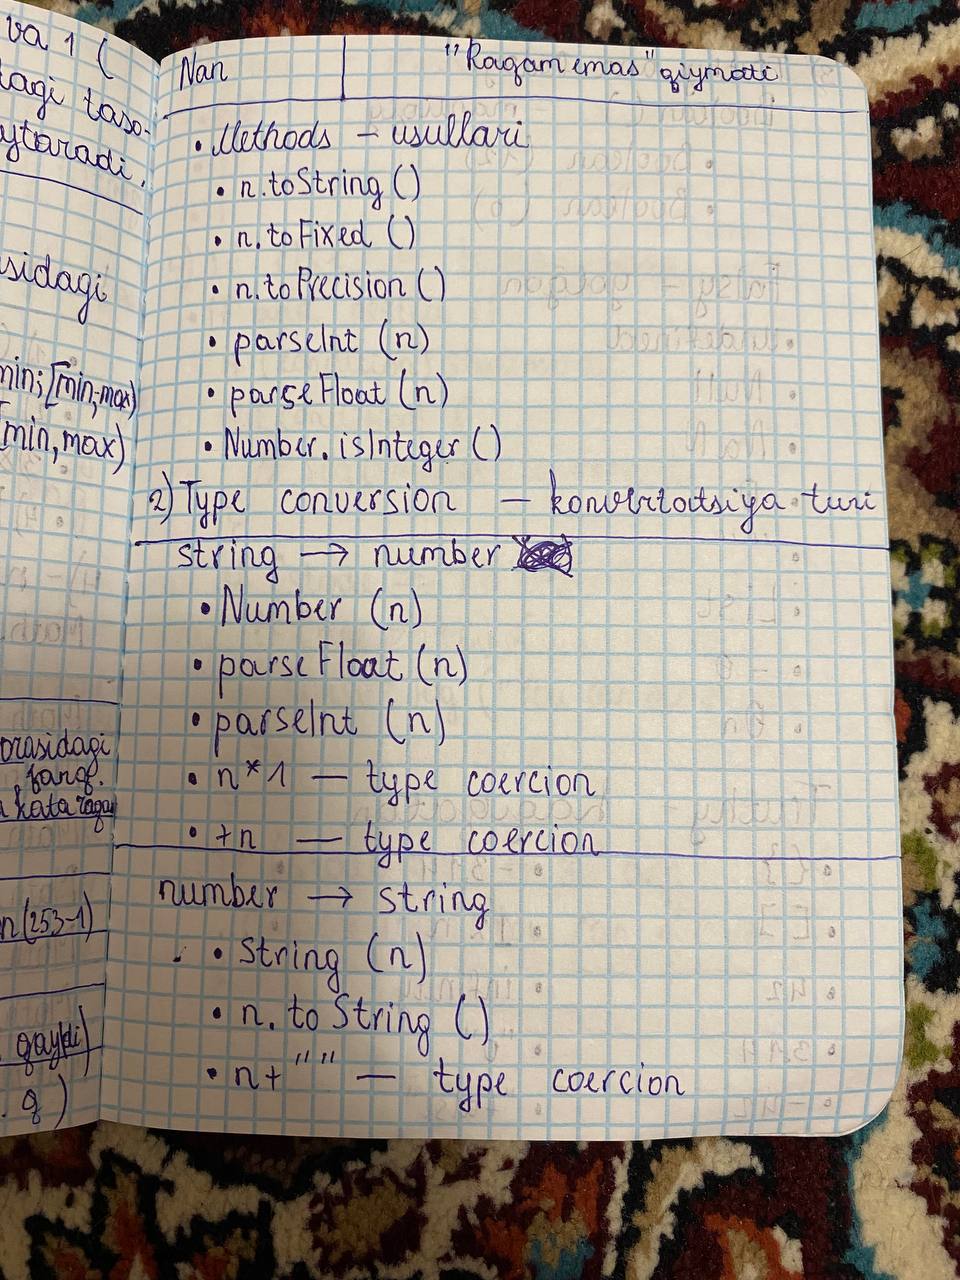 va 1 (
dagi taso-
ytaradi.
sidagi
min; [min,max)
[min, max)
orasidagi
farq.
a kataraga
n(253-1)
qaytdi)
. q)
Nan "Raqam emas" qiymati
• Methods – usullari
• n.toString ()
• n.toFixed ()
• n.toPrecision ()
• parseInt (n)
• parseFloat (n)
• Number.isInteger ()
2) Type conversion – konvertatsiya turi
string → number
• Number (n)
• parseFloat (n)
• parseInt (n)
• n*1 – type coercion
• +n – type coercion
number → string
• String (n)
• n.toString ()
• n+"" – type coercion